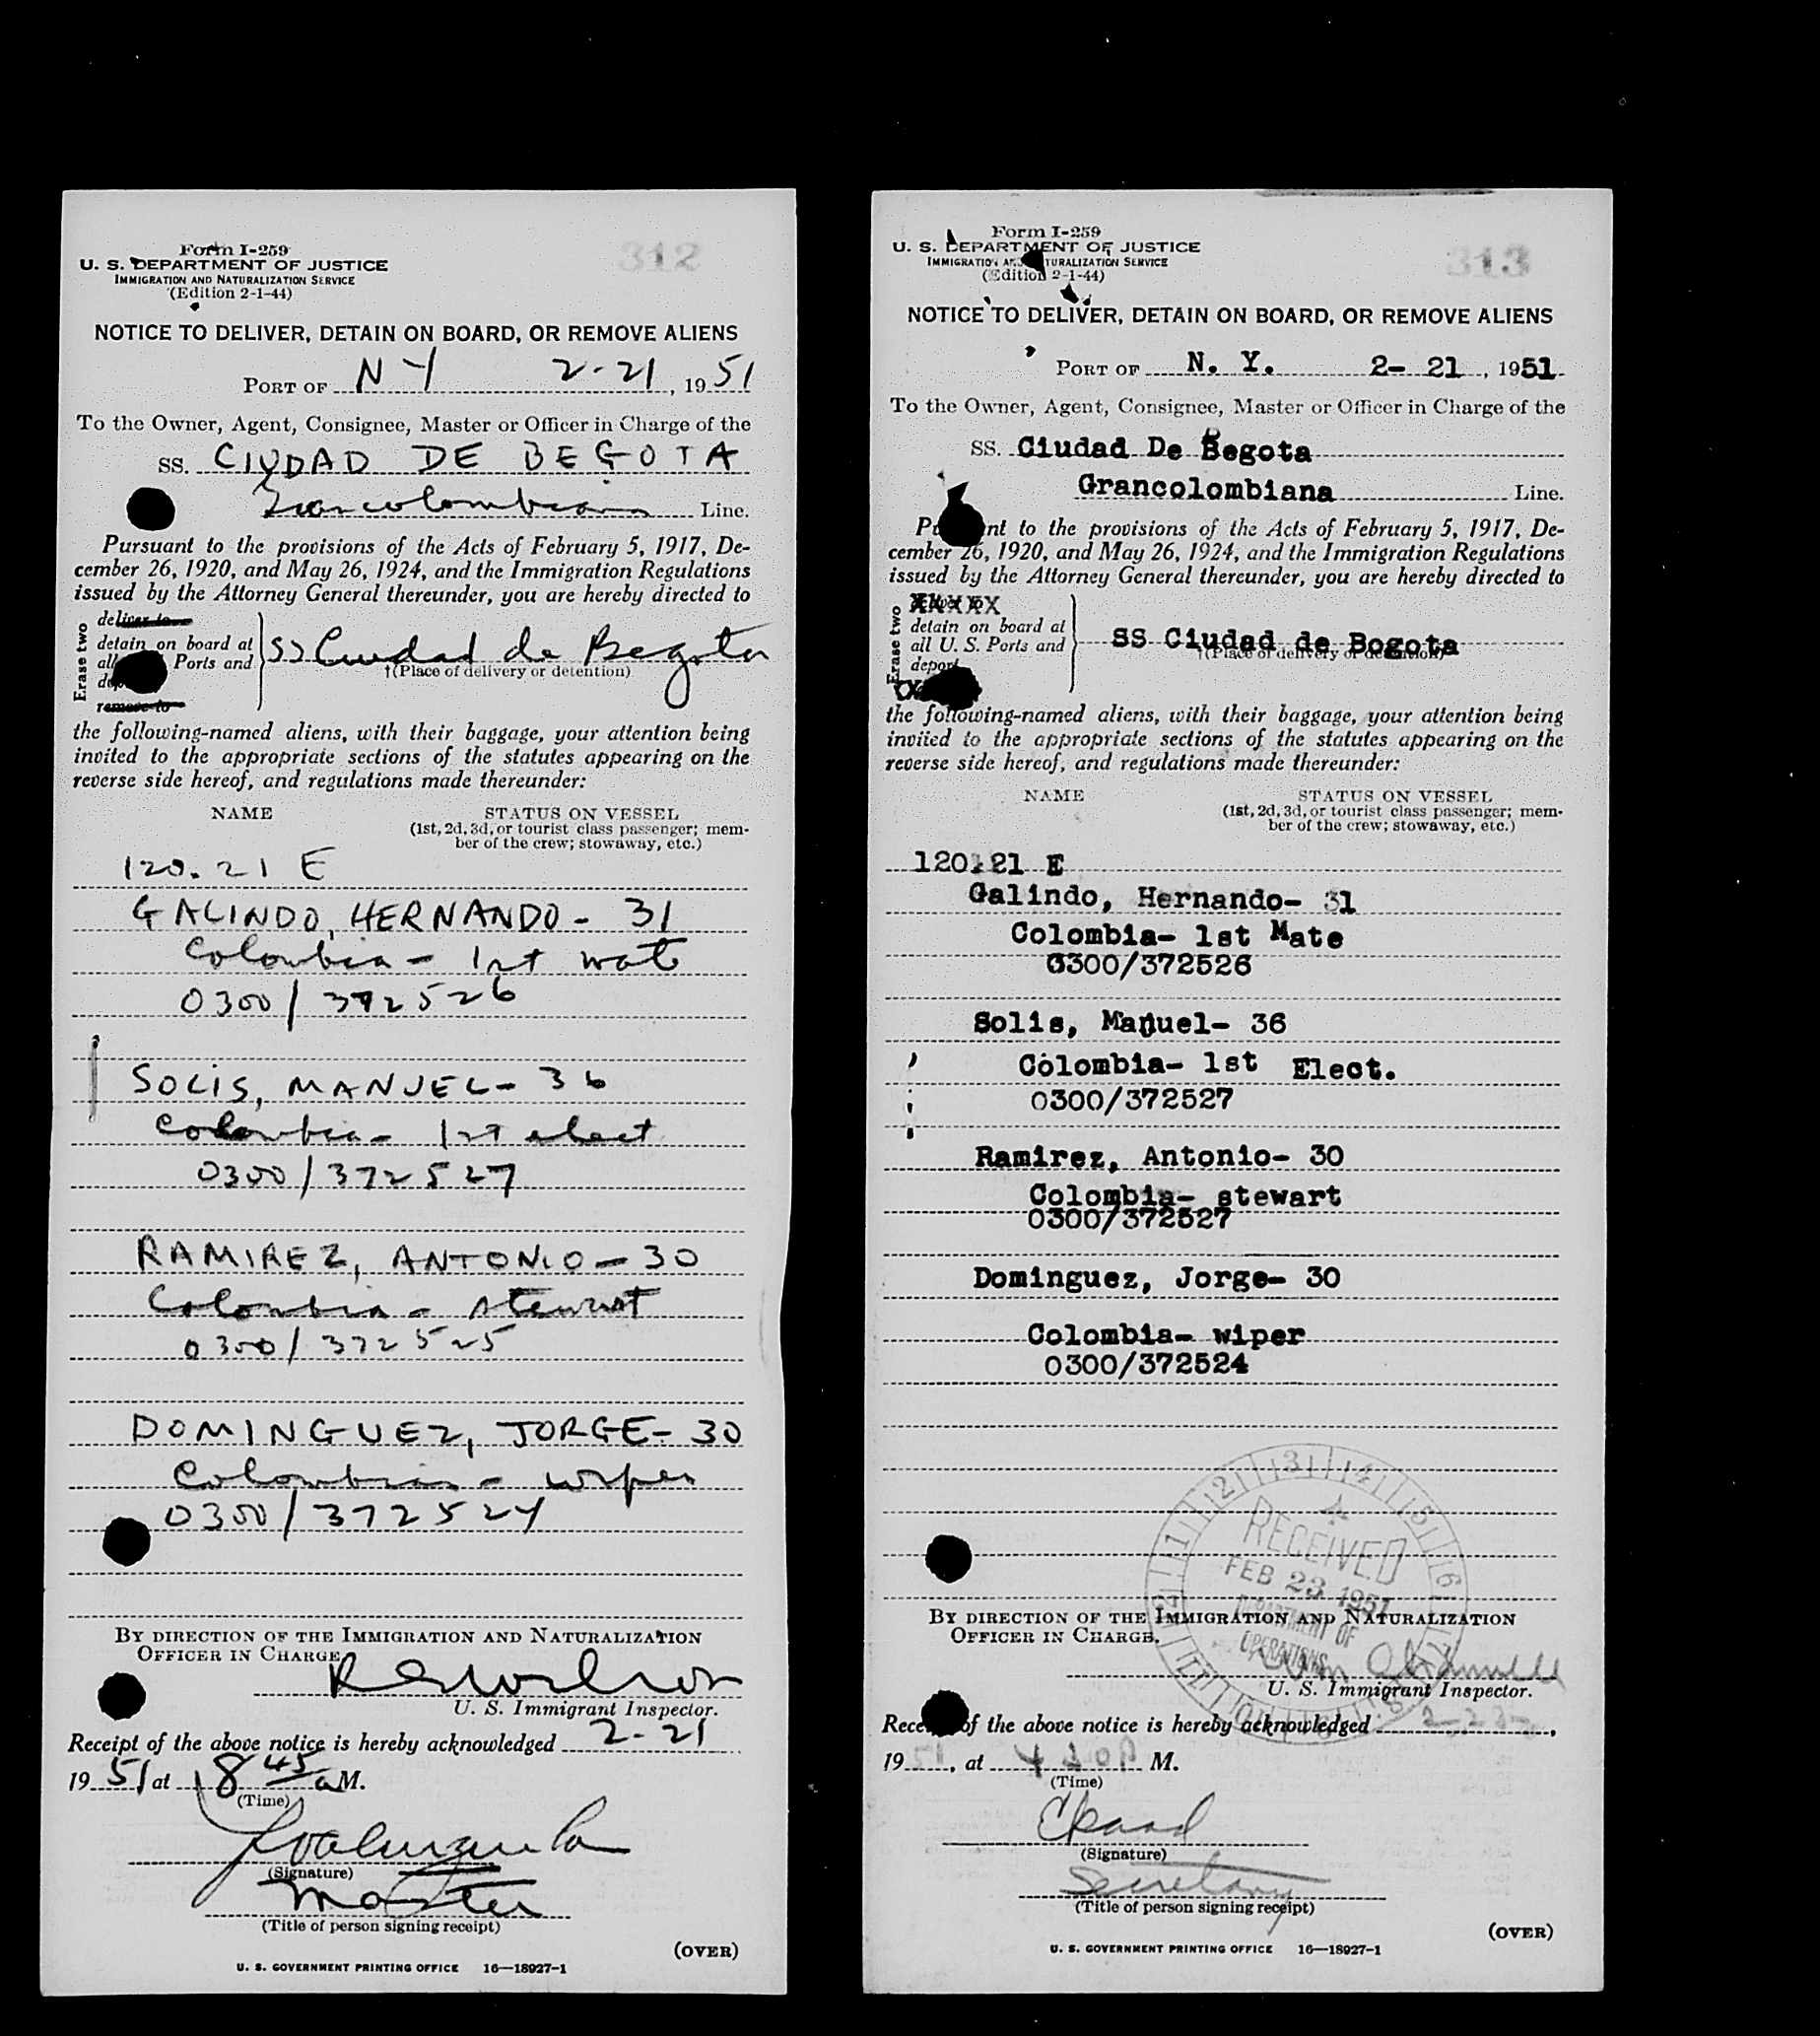 312
Form I-259
U. S. DEPARTMENT OF JUSTICE
IMMIGRATION AND NATURALIZATION SERVICE
(Edition 2-1-44)
NOTICE TO DELIVER, DETAIN ON BOARD, OR REMOVE ALIENS
PORT OF N Y 2-21, 1951
To the Owner, Agent, Consignee, Master or Officer in Charge of the
SS. CIUDAD DE BEGOTA
Grancolombiana Line.
Pursuant to the provisions of the Acts of February 5, 1917, De-
cember 26, 1920, and May 26, 1924, and the Immigration Regulations
issued by the Attorney General thereunder, you are hereby directed to
Erase two
deliver to
detain on board at
all Ports and
remove to
SS Ciudad de Begota
†(Place of delivery or detention)
the following-named aliens, with their baggage, your attention being
invited to the appropriate sections of the statutes appearing on the
reverse side hereof, and regulations made thereunder:
NAME STATUS ON VESSEL
(1st, 2d, 3d, or tourist class passenger; mem-
ber of the crew; stowaway, etc.)
120.21 E
GALINDO, HERNANDO - 31
Colombia - 1st mate
0300/372526
SOLIS, MANUEL - 36
Colombia - 1st elect
0300/372527
RAMIREZ, ANTONIO - 30
Colombia - stewart
0300/372525
DOMINGUEZ, JORGE - 30
Colombia - wiper
0300/372524
BY DIRECTION OF THE IMMIGRATION AND NATURALIZATION
OFFICER IN CHARGE,
U. S. Immigrant Inspector.
Receipt of the above notice is hereby acknowledged 2-21
1951 at 8 45 a M.
(Time)
(Signature)
Master
(Title of person signing receipt)
(OVER)
U. S. GOVERNMENT PRINTING OFFICE 16—18927-1
313
Form I-259
U. S. DEPARTMENT OF JUSTICE
IMMIGRATION AND NATURALIZATION SERVICE
(Edition 2-1-44)
NOTICE TO DELIVER, DETAIN ON BOARD, OR REMOVE ALIENS
PORT OF N. Y. 2- 21, 1951
To the Owner, Agent, Consignee, Master or Officer in Charge of the
SS. Ciudad De Begota
Grancolombiana Line.
Pursuant to the provisions of the Acts of February 5, 1917, De-
cember 26, 1920, and May 26, 1924, and the Immigration Regulations
issued by the Attorney General thereunder, you are hereby directed to
Erase two
XXXXX
detain on board at
all U. S. Ports and
deport
SS Ciudad de Bogota
†(Place of delivery or detention)
the following-named aliens, with their baggage, your attention being
invited to the appropriate sections of the statutes appearing on the
reverse side hereof, and regulations made thereunder:
NAME STATUS ON VESSEL
(1st, 2d, 3d, or tourist class passenger; mem-
ber of the crew; stowaway, etc.)
120.21 E
Galindo, Hernando- 31
Colombia- 1st Mate
0300/372526
Solis, Manuel- 36
Colombia- 1st Elect.
0300/372527
Ramirez, Antonio- 30
Colombia- stewart
0300/372527
Dominguez, Jorge- 30
Colombia- wiper
0300/372524
RECEIVED
FEB 23 1951
DEPARTMENT OF
OPERATIONS
BY DIRECTION OF THE IMMIGRATION AND NATURALIZATION
OFFICER IN CHARGE.
U. S. Immigrant Inspector.
Receipt of the above notice is hereby acknowledged
19 , at M.
(Time)
(Signature)
Secretary
(Title of person signing receipt)
(OVER)
U. S. GOVERNMENT PRINTING OFFICE 16—18927-1